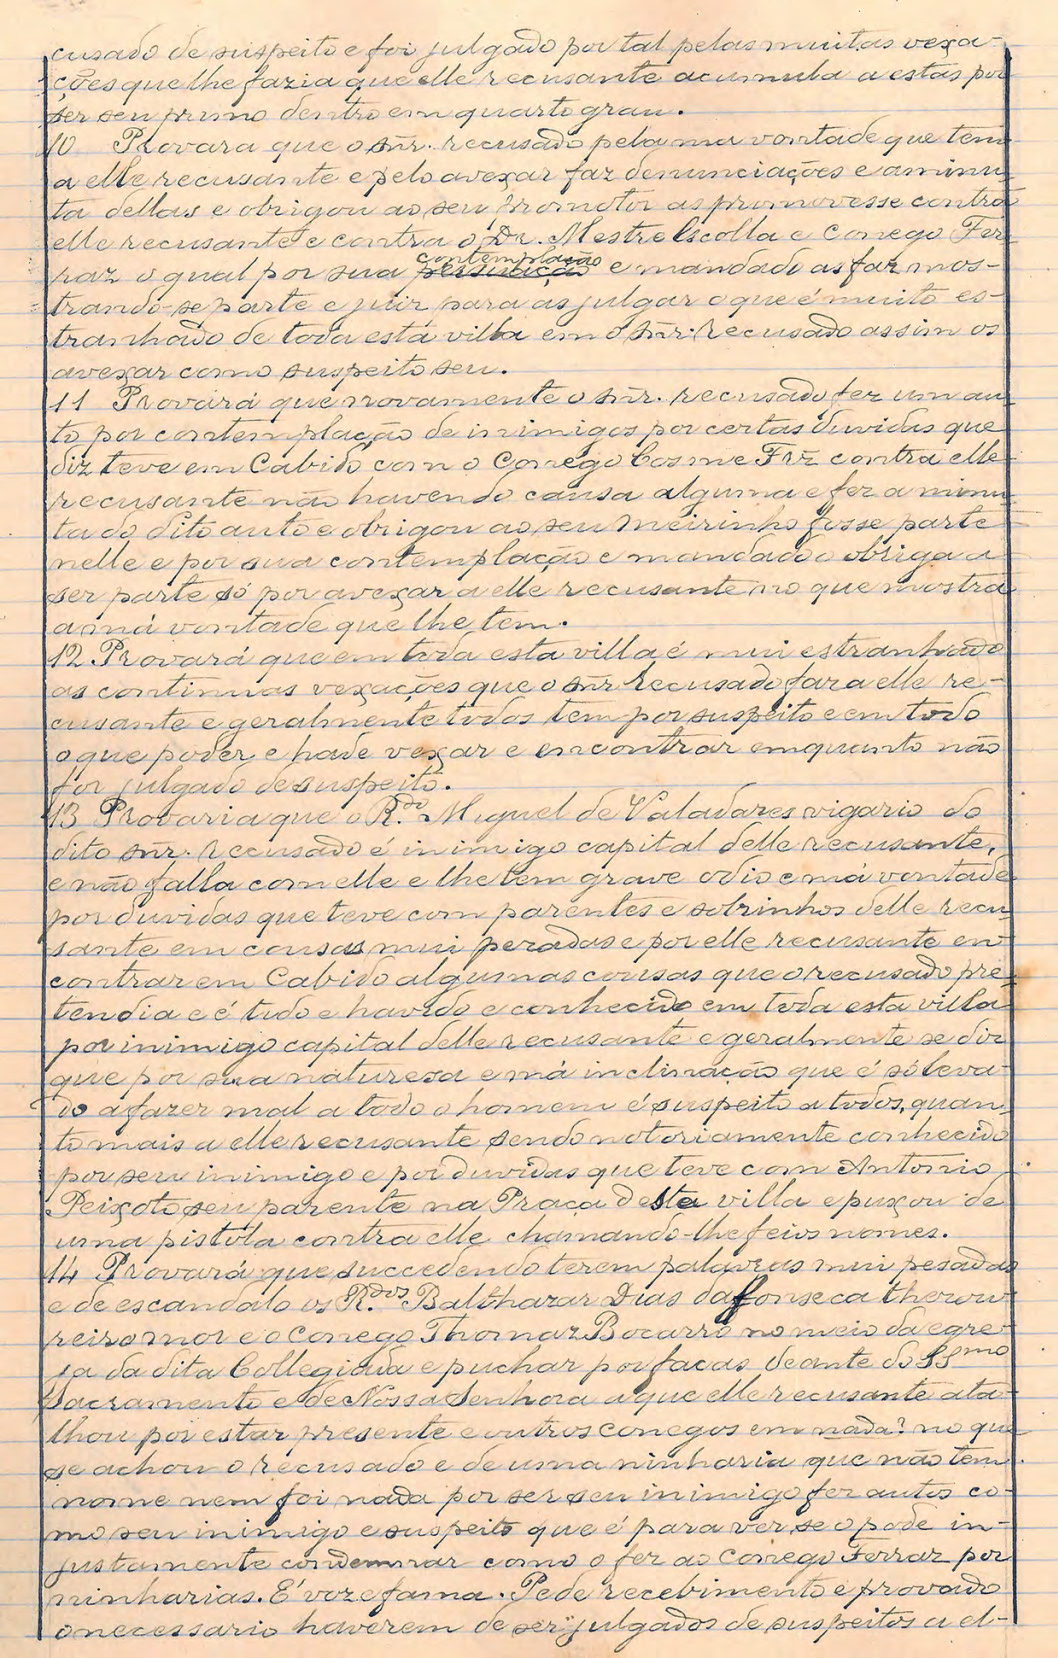 cusado de suspeito e foi julgado por tal pelas muitas vexa-
ções que lhe fazia que elle recusante acumula a estas por
ser seu primo dentro em quarto grau.
10 Provara que o snr. recusado pela ma vontade que tem
a elle recusante e pelo avexar faz denunciações e a minu
ta dellas e obrigou ao seu Promotor as promovesse contra
elle recusante e contra o Dr. Mestre Escolla e Conego Fer
raz o qual por sua contemplação persuação e mandado as faz mos-
trando-se parte e juiz para as julgar o que é muito es-
tranhado de toda está villa em o snr. recusado assim os
avexar como suspeito seu.
11 Provará que novamente o snr. recusado fez um au
to por contemplação de inimigos por certas duvidas que
diz teve em Cabido com o Conego Cosme Frz contra elle
recusante não havendo causa alguma e fez a minu
ta do dito auto e obrigou ao seu meirinho fosse parte
nelle e por sua contemplação e mandado o obriga a
ser parte só por avexar a elle recusante no que mostra
a má vontade que lhe tem.
12 Provará que em toda esta villa é mui estranhado
as continuas vexações que o snr recusado faz a elle re-
cusante e geralmente todos tem por suspeito e em todo
o que poder e hade vexar e encontrar emquanto não
for julgado de suspeito.
13 Provaria que o R.do Miguel de Valadares vigario do
dito snr. recusado é inimigo capital delle recusante,
e não falla com elle e lhe tem grave odio e má vontade
por duvidas que teve com parentes e sobrinhos delle recu
sante em cousas mui peradas e por elle recusante en
contrar em Cabido algumas cousas que o recusado pre
tendia e é tido e havido e conhecido em toda esta villa
por inimigo capital delle recusante e geralmente se diz
que por sua natureza e má inclinação que é só leva
do a fazer mal a todo o homem é suspeito a todos, quan
to mais a elle recusante sendo notoriamente conhecido
por seu inimigo e por duvidas que teve com Antonio
Peixoto seu parente na Praça desta villa e puxou de
uma pistola contra elle chamando-lhe feios nomes.
14 Provará que succedendo terem palavras mui pesadas
e de escandalo os R.dos Balthazar Dias da Fonseca thezou
reiro mor e o Conego Thomaz Bocarro no meio da egre
ja da dita Collegiada e puchar por facas deante do SSmo
Sacramento e de Nossa Senhora a que elle recusante ata
lhou por estar presente e outros conegos em nada? no que
se achou o recusado e de uma ninharia que não tem
nome nem foi nada por ser seu inimigo fez autos co-
mo seu inimigo e suspeito que é para ver se o pode in-
justamente condemnar como o fez ao Conego Ferraz por
ninharias. É voz e fama. Pede recebimento e provado
o necessario haverem de ser julgados de suspeitos a el-